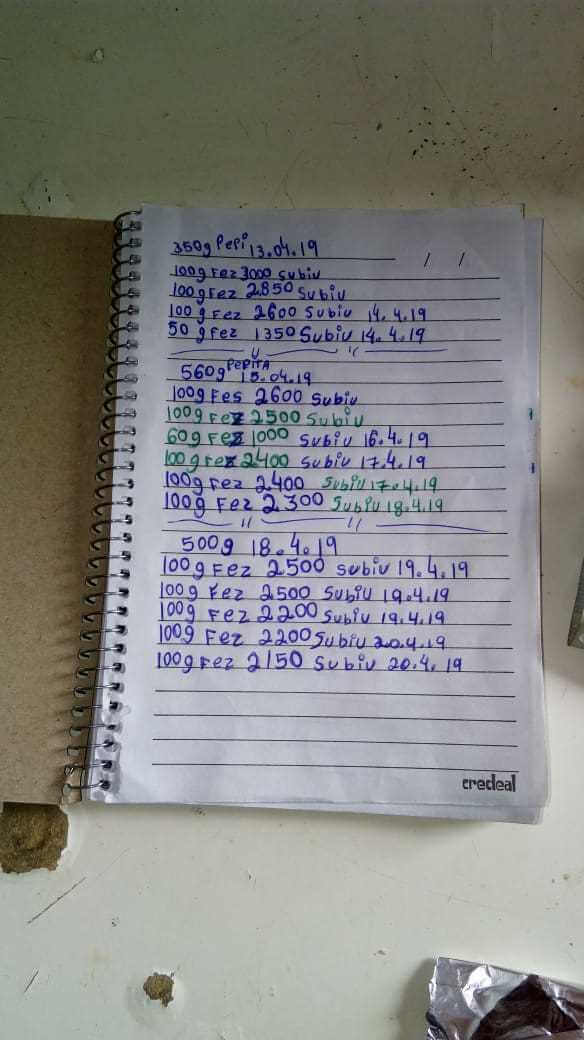 350g Pepi 13.04.19 / /
100g Fez 3000 Subiu
100g Fez 2850 Subiu
100g Fez 2600 Subiu 14.4.19
50 g Fez 1350 Subiu 14.4.19
560g PePiTA 15.04.19
100g Fes 2600 Subiu
100g Fez 2500 Subiu
60g Fez 1000 Subiu 16.4.19
100g Fez 2400 Subiu 17.4.19
100g Fez 2400 Subiu 17.4.19
100g Fez 2300 Subiu 18.4.19
500g 18.4.19
100g Fez 2500 Subiu 19.4.19
100g Fez 2500 Subiu 19.4.19
100g Fez 2200 Subiu 19.4.19
100g Fez 2200 Subiu 20.4.19
100g Fez 2150 Subiu 20.4.19
credeal